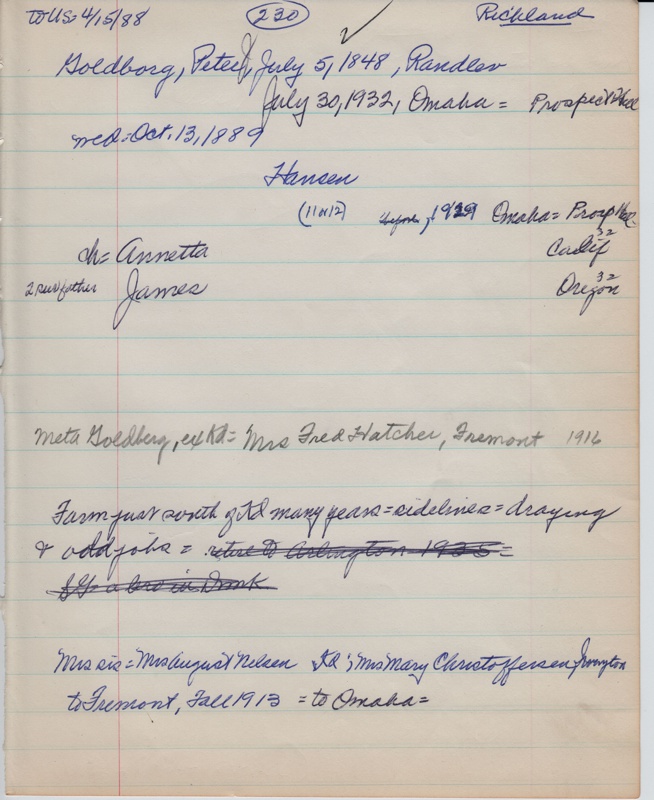 to US = 4/15/88 230 Richland
Goldborg, Peter J, July 5, 1848, Randlev
July 30, 1932, Omaha = Prospect Hill
med = Oct. 13, 1889
Hansen
(11 or 12) 1929 Omaha = Prosp Hill
ch = Annetta Calif 32
2 surv father James Oregon 32
Meta Goldberg, ex Kd = Mrs Fred Hatcher, Fremont 1916
Farm just south of Kd many years = sidelines = draying
& odd jobs = retire to Arlington 1925 =
a bro in Dmk
Mrs sis = Mrs August Nelsen Kd ; Mrs Mary Christoffersen, Irvington
to Fremont, Fall 1913 = to Omaha =